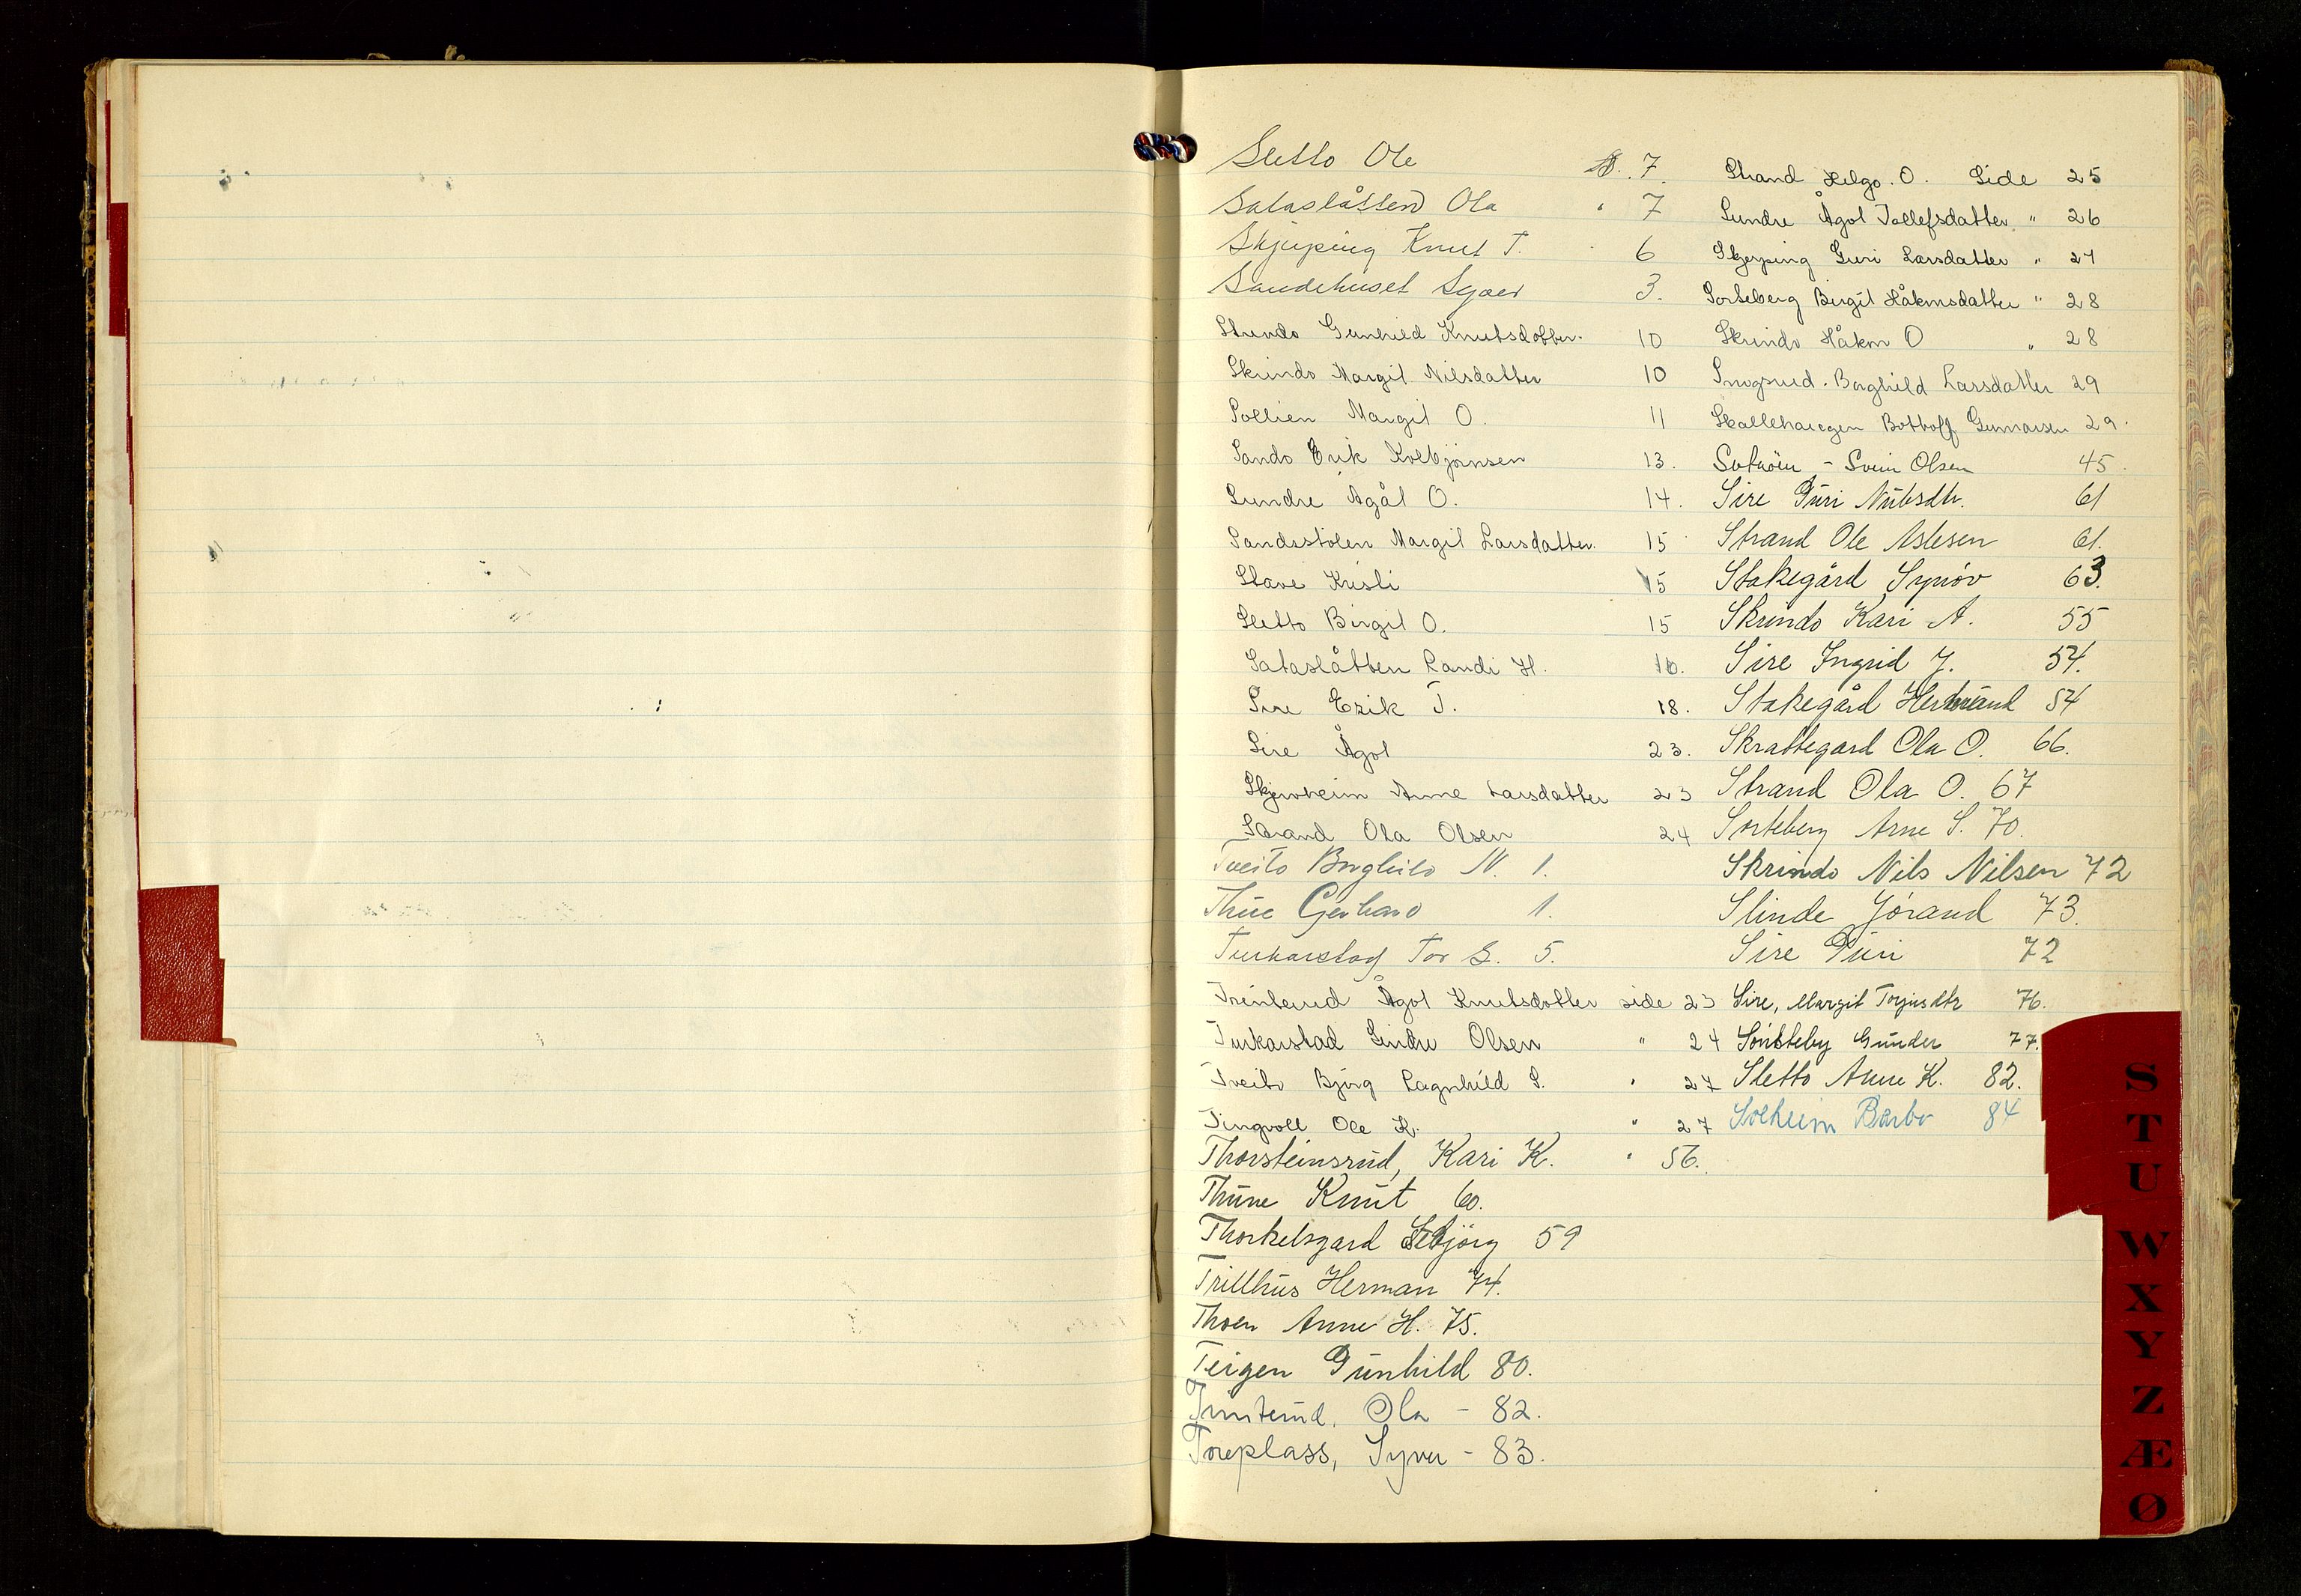 Sletto Ole S. 7.
Sataslåtten Ola " 7
Skjerping Knut T. 6
Sandehuset 3.
Skrindo Gunhild Knutsdotter. 10
Skrindo Margit Nilsdatter 10
Sollien Margit O. 11
Sando Erik Kolbjørnsen 13.
Sundre Agål O. 14.
Sandsstølen Margit Larsdatter. 15
Slave Kristi 15
Sletto Birgit O. 15
Sataslåtten Randi H. 16.
Sire Erik T. 18.
Sire Ågot 23.
Skjerheim Anne Larsdatter 23
Strand Ola Olsen 24
Tveito Borghild N. 1.
Thue Gerhard 1.
Turkarstad Tor S. 5.
Trinterud Ågot Knutsdotter side 23
Turkarstad Sindre Olsen " 24
Tveito Bjørg Ragnhild S. " 27
Tingvoll Ole K. " 27
Thorsteinsrud, Kari K. " 56.
Thune Knut 60.
Thorkelsgard Sebjörg 59
Trillhus Herman 74.
Thoen Anne H. 75.
Teigen Gunhild 80.
Trinterud, Ola - 82.
Toreplass, Syver - 83.
Strand Helge. O. Side 25
Sundre Ågot Tollefsdatter " 26
Skjerping Guri Larsdatter " 27
Sorteberg Birgit Håkonsdatter " 28
Skrindo Håkon O " 28
Snogsrud. Borghild Larsdatter 29
Skallehaugen Bottolf Gunnarsen 29.
- Svein Olsen 45.
Sire Guri Nubsdtr. 61
Strand Ole Aslesen 61.
Stakegård Synöv 63.
Skrindo Kari A. 55
Sire Ingrid J. 54.
Stakegård Hermand 54
Skrattegard Ola O. 66.
Strand Ola O. 67
Sorteberg Arne S. 70.
Skrindo Nils Nilsen 72
Slinde Jörand 73.
Sire Guri 72
Sire, Margit Torjusdtr 76.
Sönsteby Gunder 77.
Sletto Anne K. 82.
Solheim Barbo 84
S
T
U
W
X
Y
Z
Æ
Ø